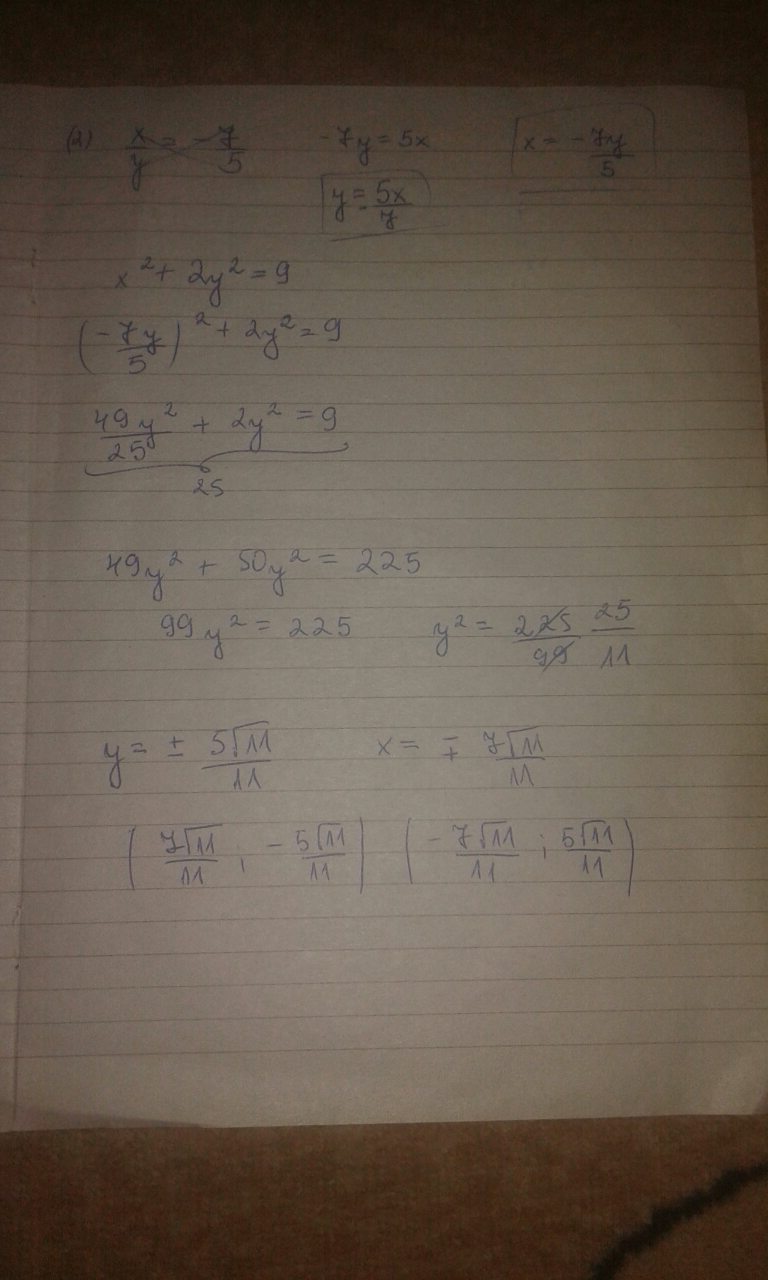 (2) x/y = -7/5 -7y = 5x x = -7y/5
y = -5x/7
x² + 2y² = 9
(-7y/5)² + 2y² = 9
49y²/25 + 2y² = 9
25
49y² + 50y² = 225
99y² = 225 y² = 225/99 25/11
y = ± 5√11/11 x = ∓ 7√11/11
(7√11/11 ; -5√11/11) (-7√11/11 ; 5√11/11)